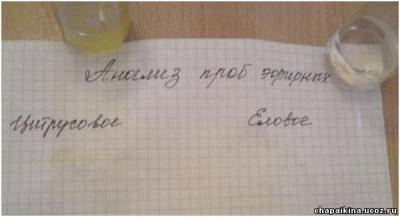 Анализ проб эфирных
Цитрусовое
Еловое
chapaikina.ucoz.ru